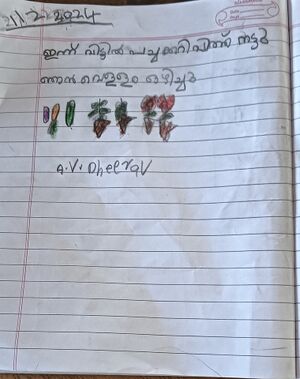 21.2.2024
ഇന്ന് വീട്ടിൽ പച്ചക്കറിവിത്ത് നട്ടു
ഞാൻ വെള്ളം ഒഴിച്ചു
A.V. Dheerav